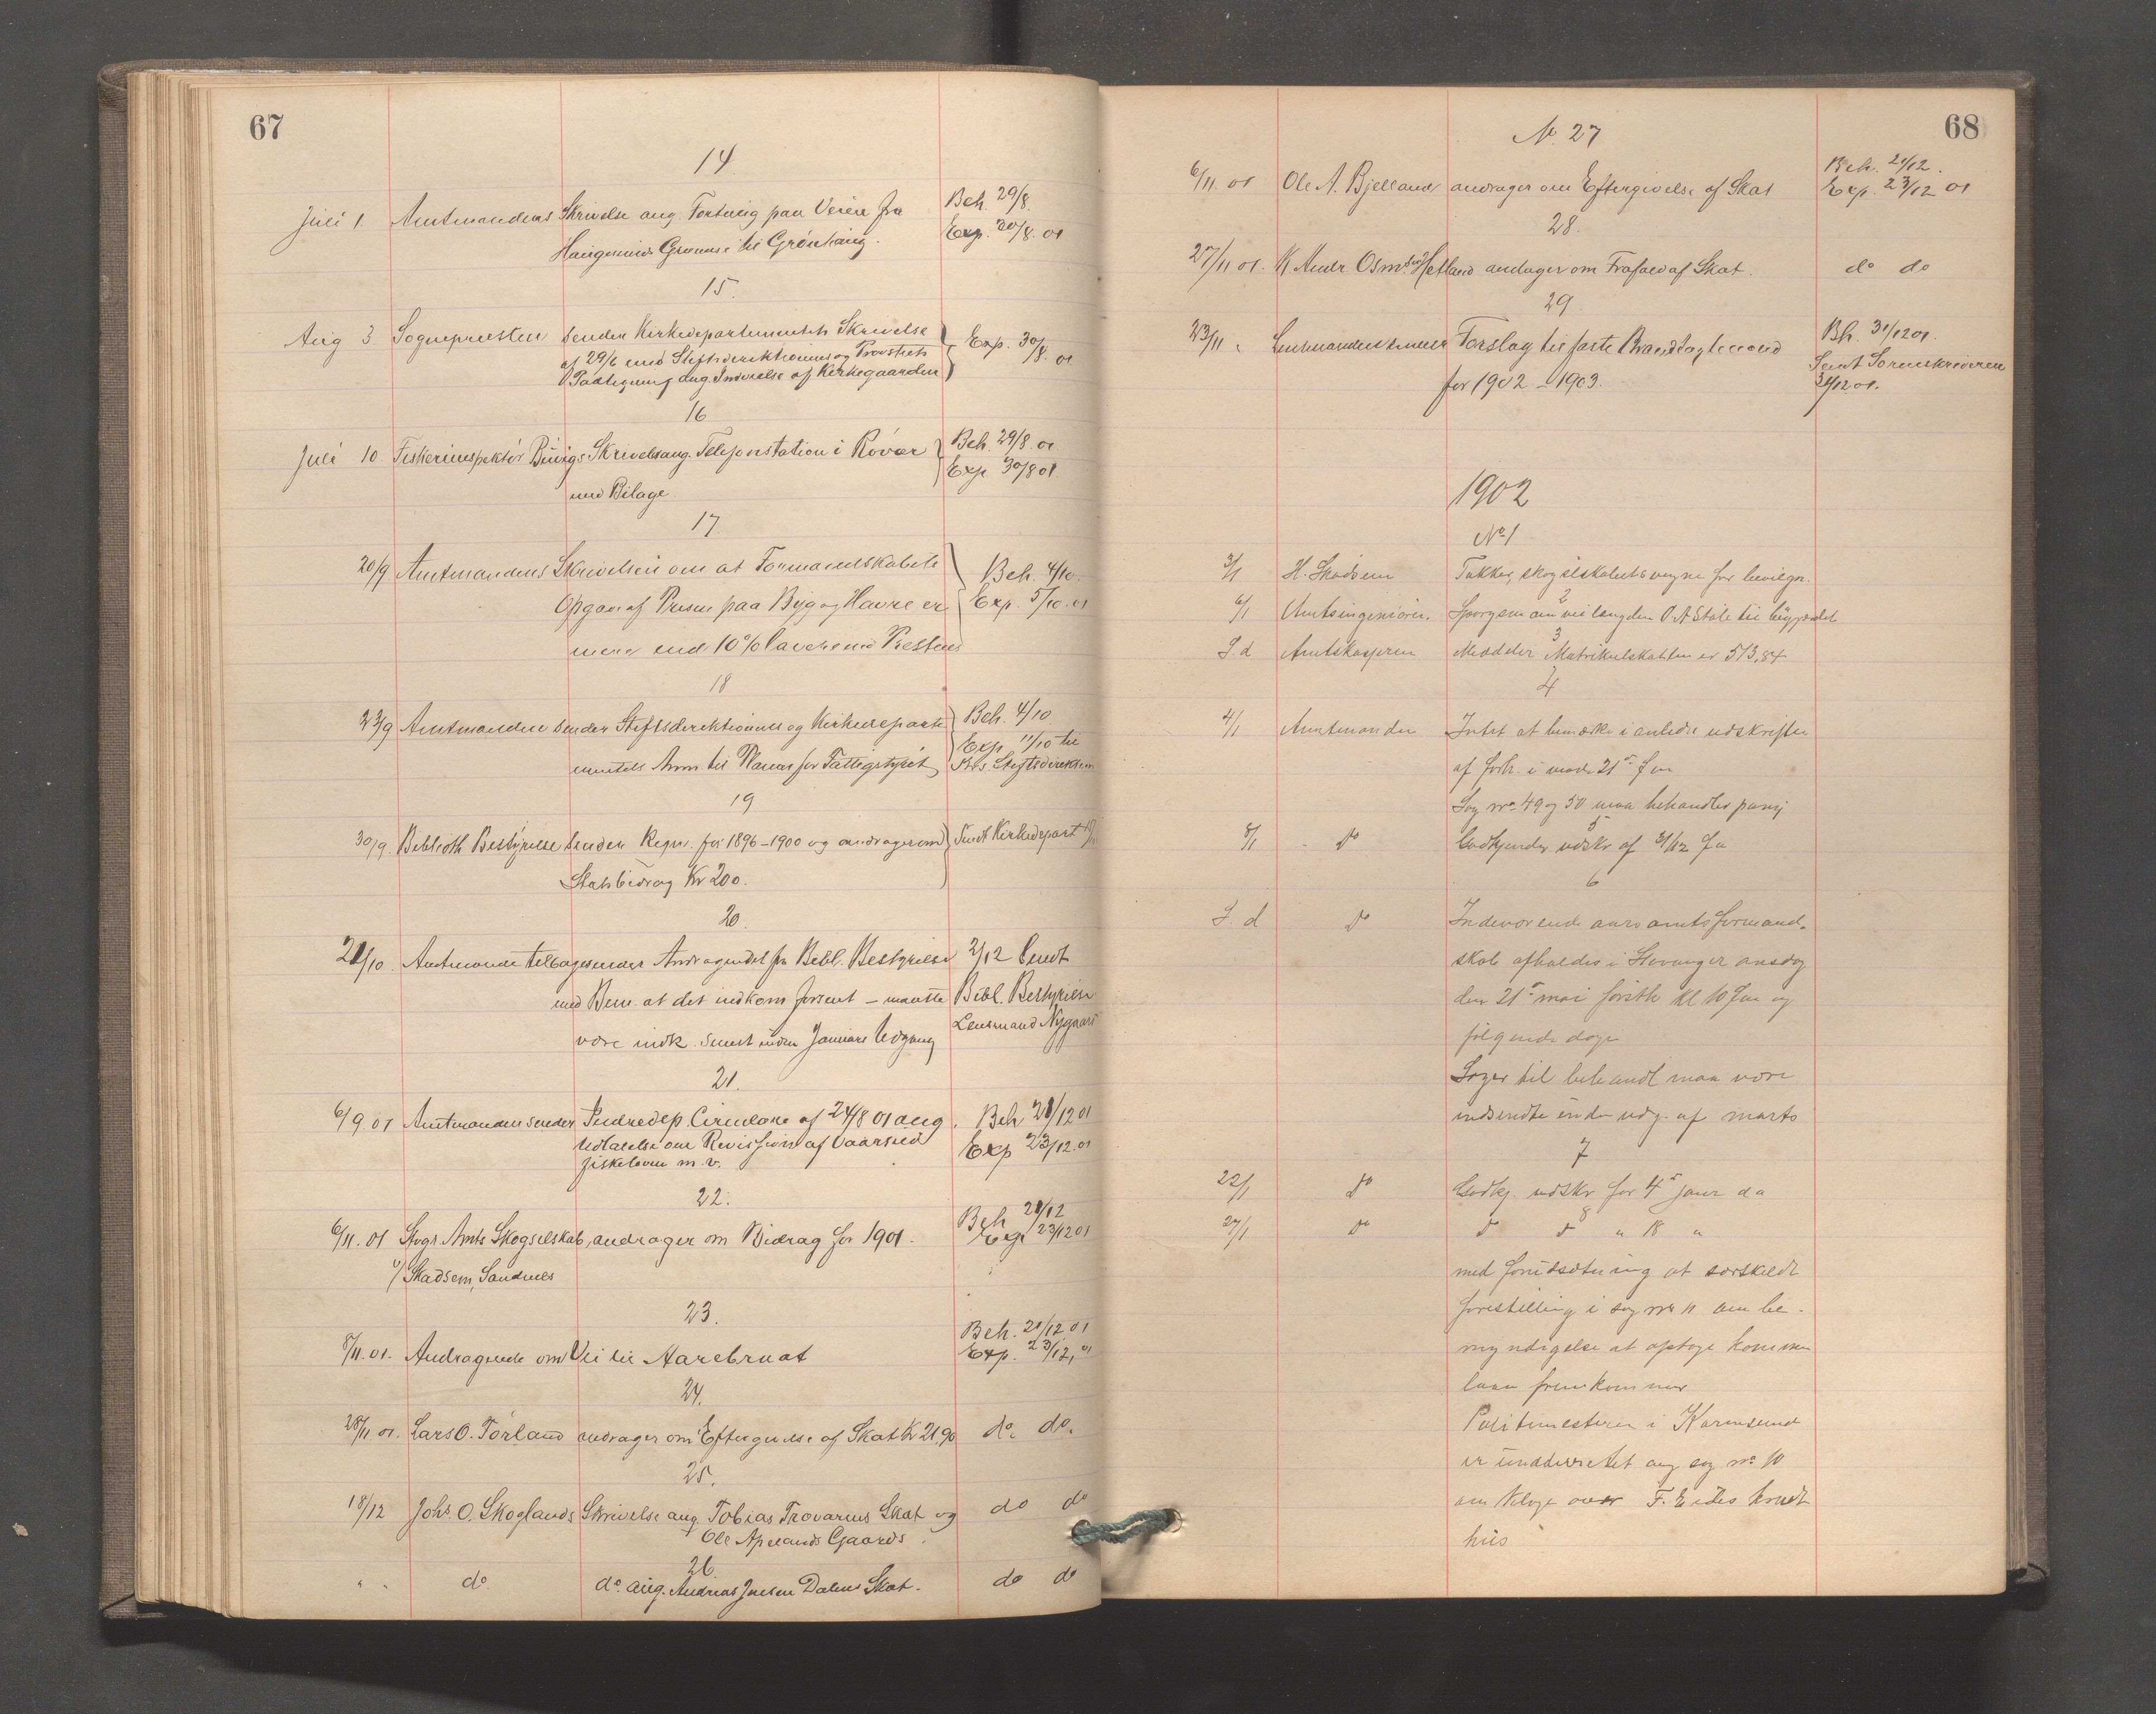 67
14.
Juli 1. Amtmandens Skrivelse ang. Fortoug paa Veien fra Beh. 29/8.
Haugesunds Grændse til Grønhaug. Exp. 30/8. 01
15.
Aug 3 Sognepresten sender Kirkedepartementets Skrivelse Exp. 30/8. 01
af 29/6 med Stiftsdirektionens og Provstiets
Paategning ang. Indvielse af Kirkegaarden
16
Juli 10 Fiskeriinspektør Buvigs Skrivelse ang. Telefonstation i Røvær Beh. 29/8. 01
med Bilage. Exp 30/8 01.
17.
20/9. Amtmandens Skrivelse om at Formandskabets Beh. 4/10.
Opgave af Prisen paa Byg og Havre er Exp. 5/10. 01
mere end 10% lavere end Prestens
18
23/9 Amtmanden sender Stiftsdirektionens og Kirkedeparte Beh. 4/10
mentets Anm. til Planen for Fattigstyret Exp 11/10 til
Stiftsdirektionen
19
30/9. Biblioth Bestyrelse sender Regn. for 1896-1900 og andrager om Sendt Kirkedepart
Statsbidrag Kr 200.
20.
21/10 Amtmanden tilbagesender Andragendet fra Bibl. Bestyrelse 2/12 sendt
med Bem. at det indkom forsent - maatte Bibl. Bestyrelse
være indk. senest inden Januars Udgang Lensmand Nygaard
21.
6/9. 01 Amtmanden sender Indredep. Cirkulære af 24/8 01 ang. Beh 21/12 01
Udtalelse om Revission af Vaarsild Exp 23/12. 01
fiskeloven m. v.
22.
6/11. 01 Stvgr. Amts Skogselskab, andrager om Bidrag for 1901. Beh 21/12
v/ Skadsem, Sandnes Exp 23/12 01
23.
8/11. 01. Andragende om Vei til Aarebruat Beh. 21/12 01
Exp. 23/12, 01
24.
28/11 01. Lars O. Førland andrager om Eftergivelse af Skat Kr 21.90 do. do.
25.
18/12 Johs. O. Skoglands Skrivelse ang. Tobias Trovaruns Skat og do do
Ole Apelands Gaards.
26.
" " do. do. ang. Andreas Jnsen Dalens Skat. do do
68
No 27
6/11 01 Ole A. Bjelland andrager om Eftergivelse af Skat Beh. 21/12.
Exp. 23/12 01
28.
27/11 01. K Andr. Osm.sen Hetland andager om Frafald af Skat. do do
29
23/11 " Lensmanden sender Forslag til faste Brandtagtmænd Bh. 31/12 01.
for 1902 - 1903. Sent Sorenskriveren
31/12 01.
1902
No 1
3/1 H. Skadsem Takker, skogselskabets vegne for bevilgn.
2
6/1 Amtsingeniøren. Spørgsm om veilængden
3
S. d Amtskasseren Meddeler Matrikulskatten er 513,84
4
4/1 Amtmanden Intet at bemærke i anledn udskriften
af forh. i møde 21 f m
Sag no 49 og 50 maa behandles paany
5
8/1 - Do Godkjender udskr af 31/12 f a
6
S. d Do Indeværende aars amtsformand-
skab afholdes i Stavanger onsdag
den 21 mai førsth kl 10 Fm og
følgende dage
Sager til behandl maa være
indsendte inden udg. af marts
7
22/1 Do Godkj. udskr for 4 janr da
8
27/1 Do D D " 18 "
med forudsætning at særskildt
forestilling i sag no 11 om be-
myndigelse at optage kommu
laan fremkommer
Politimesteren i Karmsund
er underrettet ang sag no 10
om klage over F. Eides brudt
hus